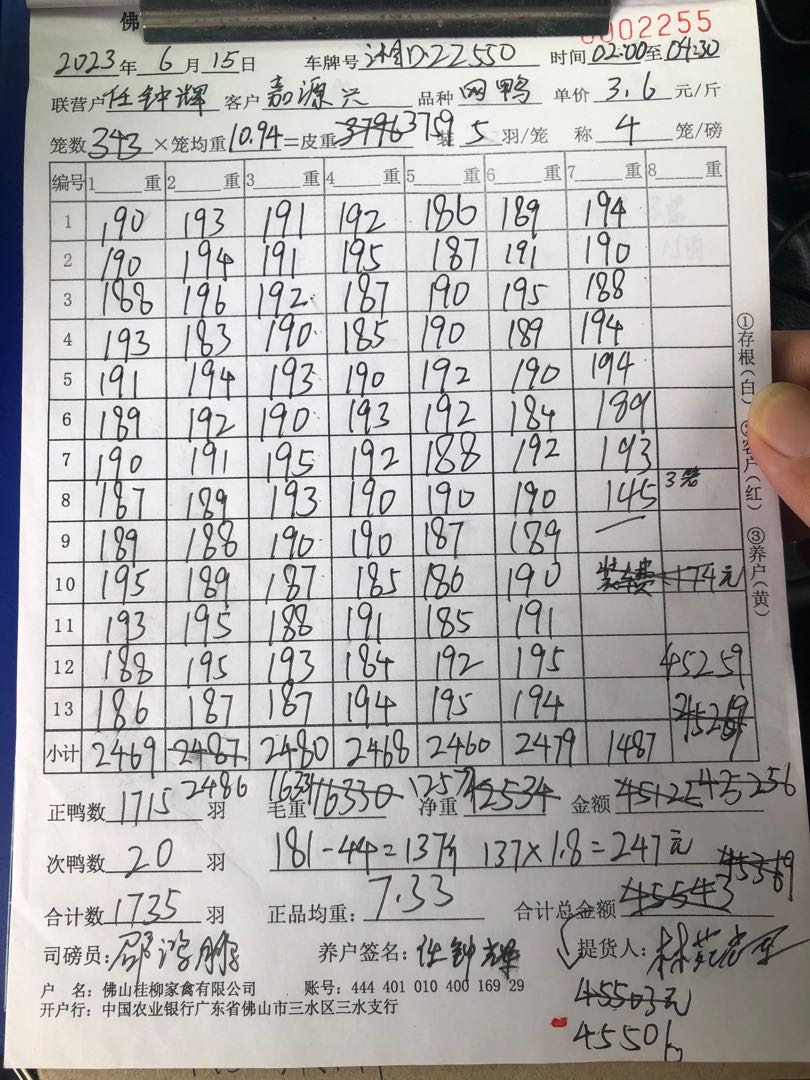 佛
0002255
2023年 6月 15日 车牌号 湘D·22550 时间 02:00至04:30
联营户 任钟辉 客户 嘉源兴 品种 网鸭 单价 3.6 元/斤
笼数 343 ×笼均重 10.94 =皮重 3796 3759 装 5 羽/笼 称 4 笼/磅
编号 1 重 2 重 3 重 4 重 5 重 6 重 7 重 8 重
1 190 193 191 192 186 189 194
2 190 194 191 195 187 191 190
3 188 196 192 187 190 195 188
4 193 183 190 185 190 189 194
5 191 194 193 190 192 190 194
6 189 192 190 193 192 184 189
7 190 191 195 192 188 192 193
8 187 189 193 190 190 190 145 3笼
9 189 188 190 190 187 189
10 195 189 187 185 186 190 装车费 174元
11 193 195 188 191 185 191
12 188 195 193 184 192 195 45259
13 186 187 187 194 195 194
小计 2469 2487 2480 2468 2460 2479 1487
2486
正鸭数 1715 羽 毛重 16330 净重 12534 金额 45122
次鸭数 20 羽 181-44=137斤 137×1.8=247元
合计数 1735 羽 正品均重: 7.33 合计总金额 45543
司磅员: 养户签名: 任钟辉 提货人:
户 名: 佛山桂柳家禽有限公司 账号: 444 401 010 400 169 29
开户行: 中国农业银行广东省佛山市三水区三水支行
45503元
45501
①存根(白) ②客户(红) ③养户(黄)